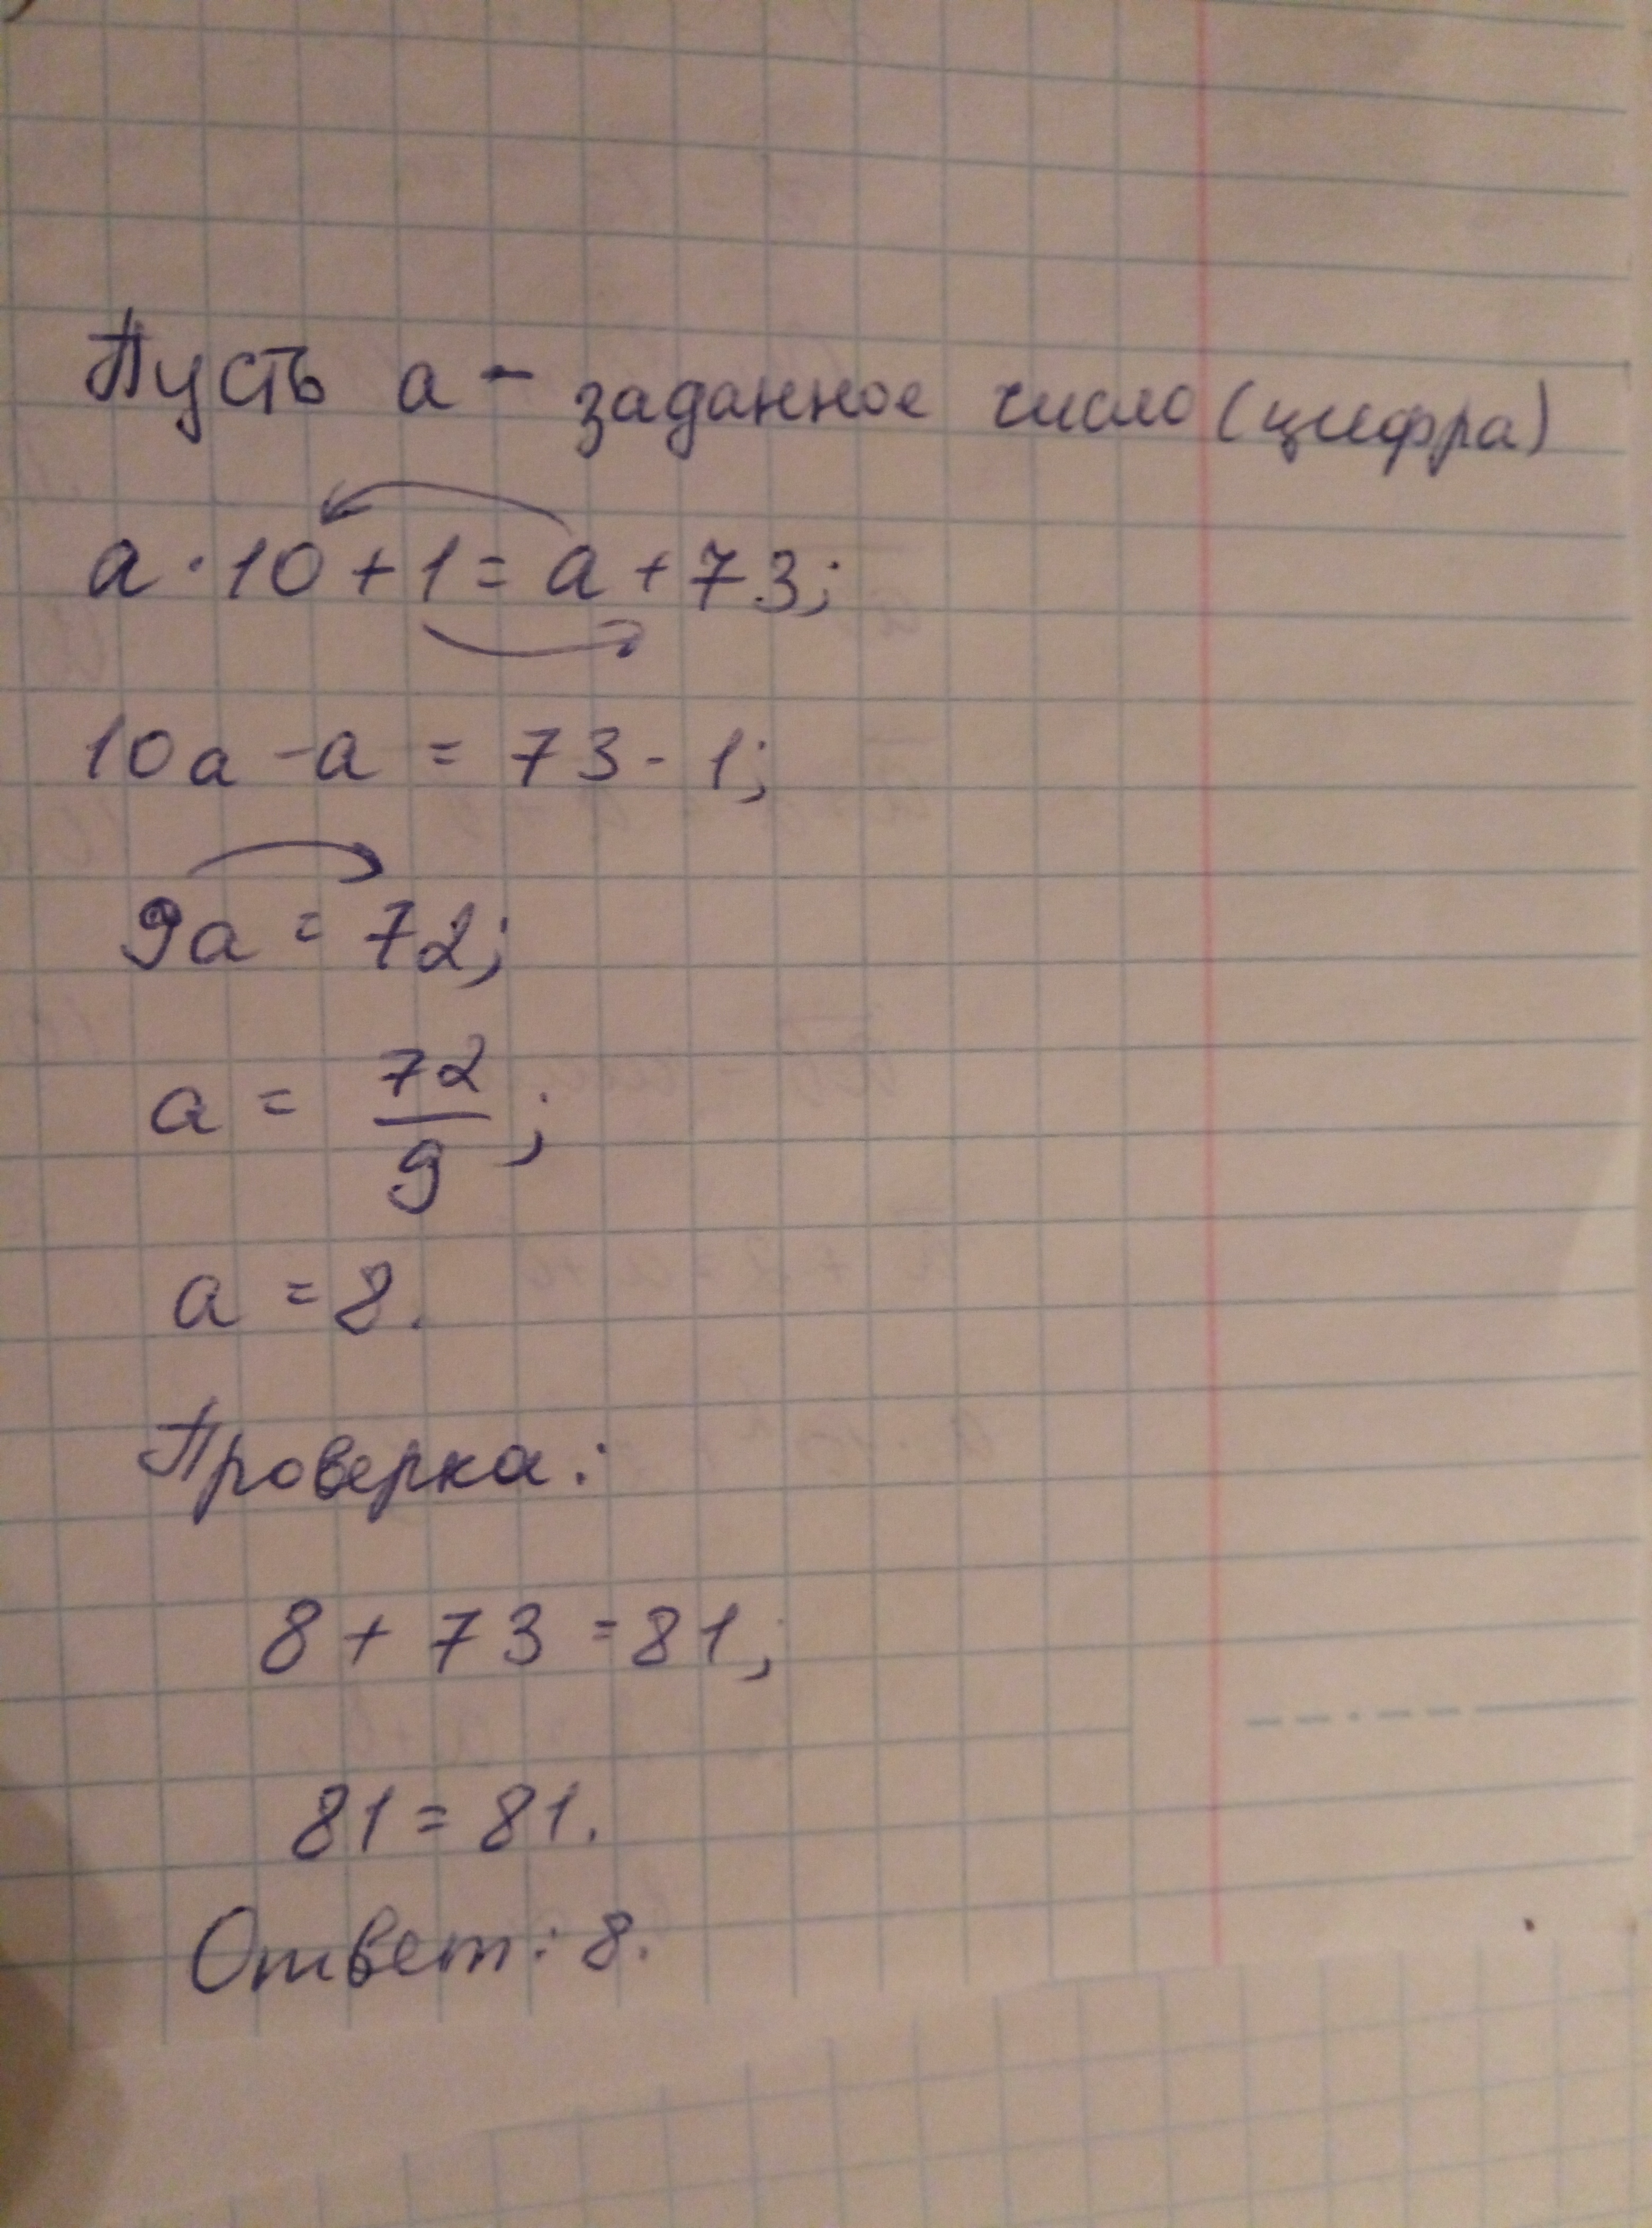 Пусть a - заданное число (цифра)
a·10+1=a+73;
10a-a=73-1;
9a=72;
a=72/9;
a=8.
Проверка:
8+73=81;
81=81.
Ответ: 8.